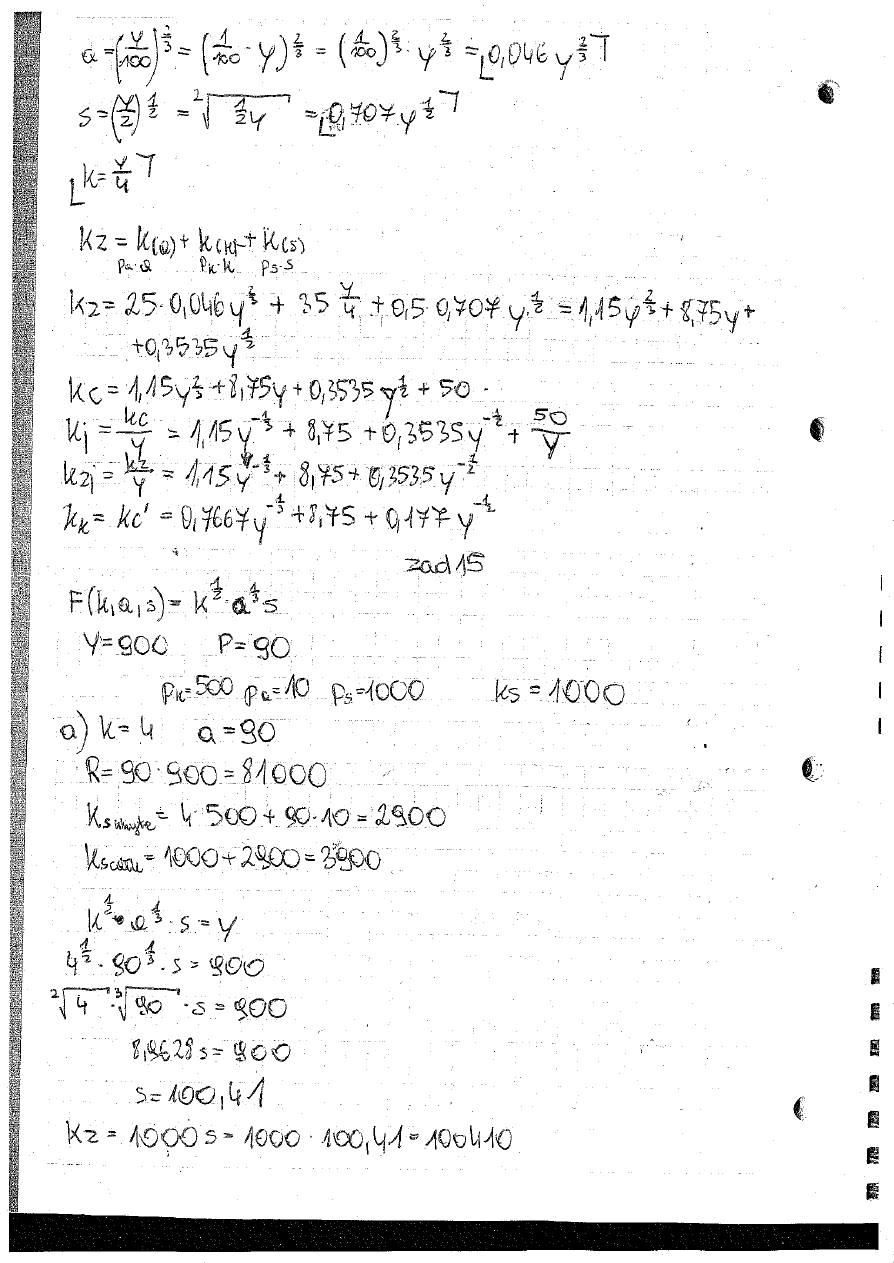 a = (y/100)^(2/3) = (1/100 · y)^(2/3) = (1/100)^(2/3) · y^(2/3) = 0,046 y^(2/3)
s = (y/2)^(1/2) = ²√(1/2 y) = 0,707 y^(1/2)
k = y/4
Kz = K(a) + K(k) + K(s)
pa·a pk·k ps·s
Kz = 25·0,046y^(2/3) + 35 y/4 + 0,5·0,707 y^(1/2) = 1,15y^(2/3) + 8,75y +
+0,3535y^(1/2)
Kc = 1,15y^(2/3) + 8,75y + 0,3535y^(1/2) + 50
Kj = Kc/y = 1,15y^(-1/3) + 8,75 + 0,3535y^(-1/2) + 50/y
Kzj = Kz/y = 1,15y^(-1/3) + 8,75 + 0,3535y^(-1/2)
Kk = Kc' = 0,7667y^(-1/3) + 8,75 + 0,177y^(-1/2)
zad 15
F(k,a,s) = k^(1/2) · a^(1/3) s
Y=900 P=90
pk=500 pa=10 ps=1000 ks = 1000
a) k=4 a=90
R= 90·900 = 81000
= 4·500 + 90·10 = 2900
= 1000+2900 = 3900
k^(1/2) · a^(1/3) · s = y
4^(1/2) · 90^(1/3) · s = 900
²√4 · ³√90 · s = 900
8,9628 s = 900
s = 100,41
Kz = 1000 s = 1000 · 100,41 = 100410